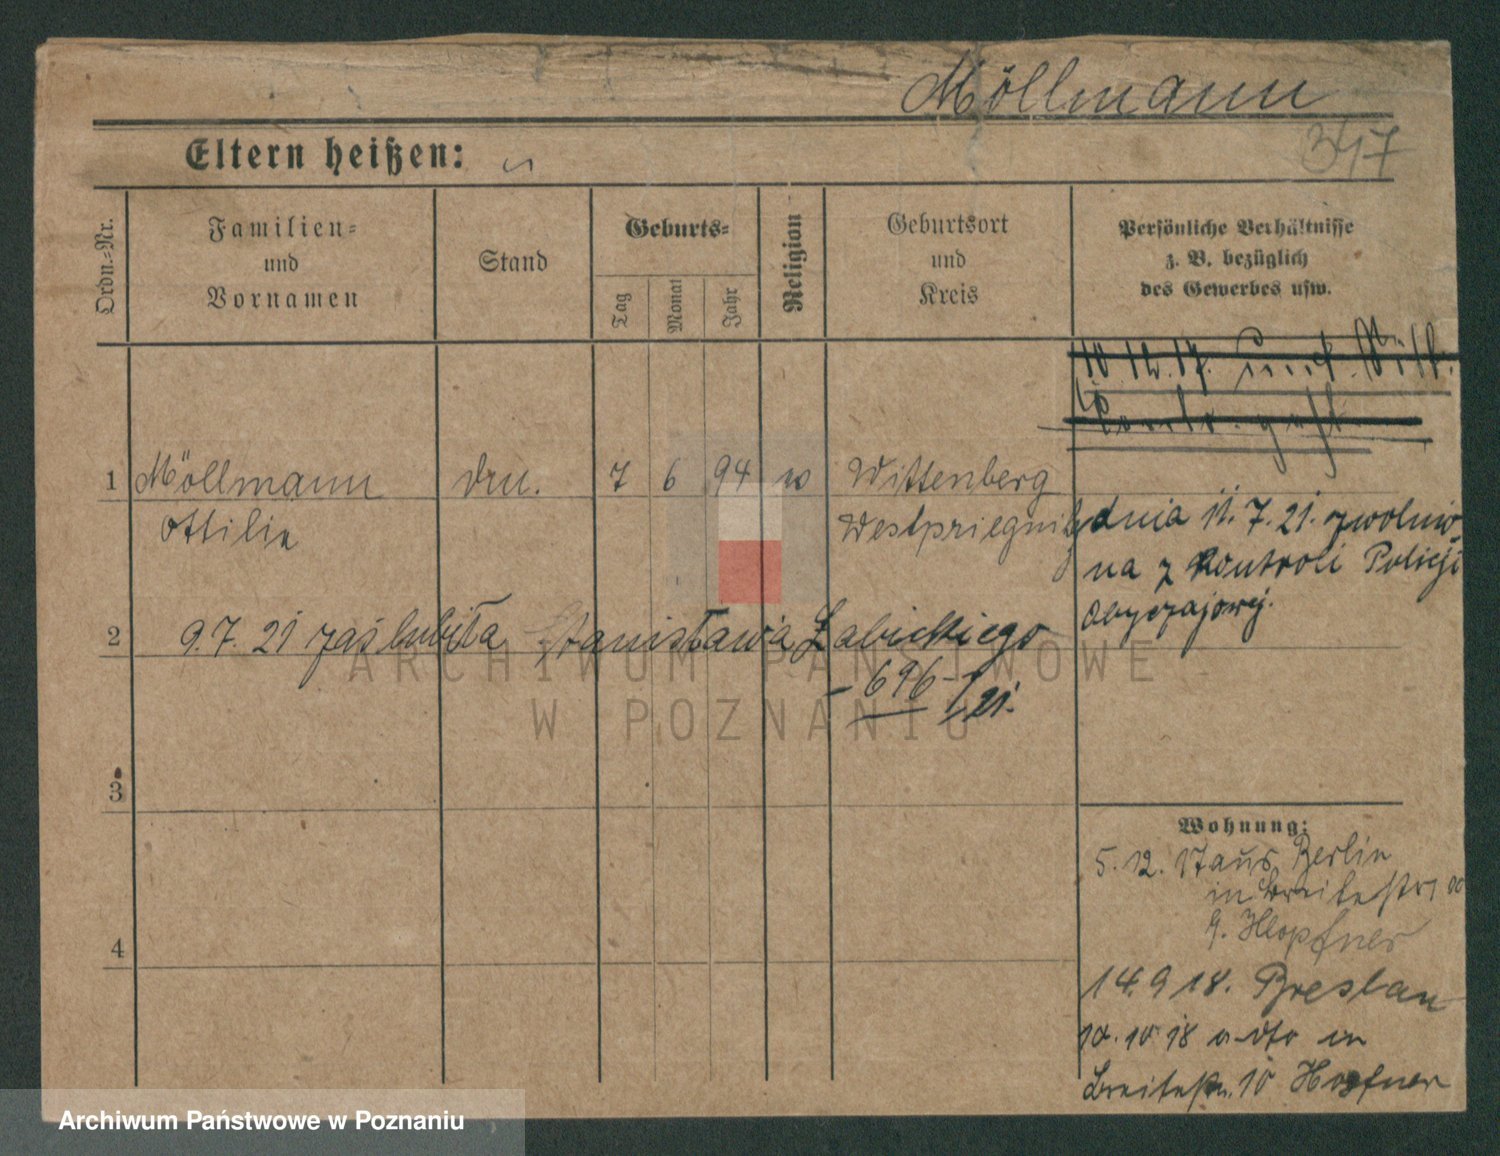 Möllmann
347
Eltern heißen:
Ordn.-Nr.
Familien-
und
Vornamen
Stand
Geburts-
Tag
Monat
Jahr
Religion
Geburtsort
und
Kreis
Persönliche Verhältnisse
z. B. bezüglich
des Gewerbes usw.
10.12.17.
1 Möllmann 7 6 94 Wittenberg
Ottilie Westpriegnitz
dnia 11.7.21. zwolnio
na z kontroli Policji
Obyczajowej.
2 9.7.21 zaślubiła Stanisława Żabickiego
- 696 - /21.
3
4
Wohnung:
5.12.17 aus Berlin
in Breitestr. 10
b. Hoepfner
14.9.18. Breslau
10.10.18 in
Breitestr. 10 Hoepfner
ARCHIWUM PAŃSTWOWE
W POZNANIU
Archiwum Państwowe w Poznaniu